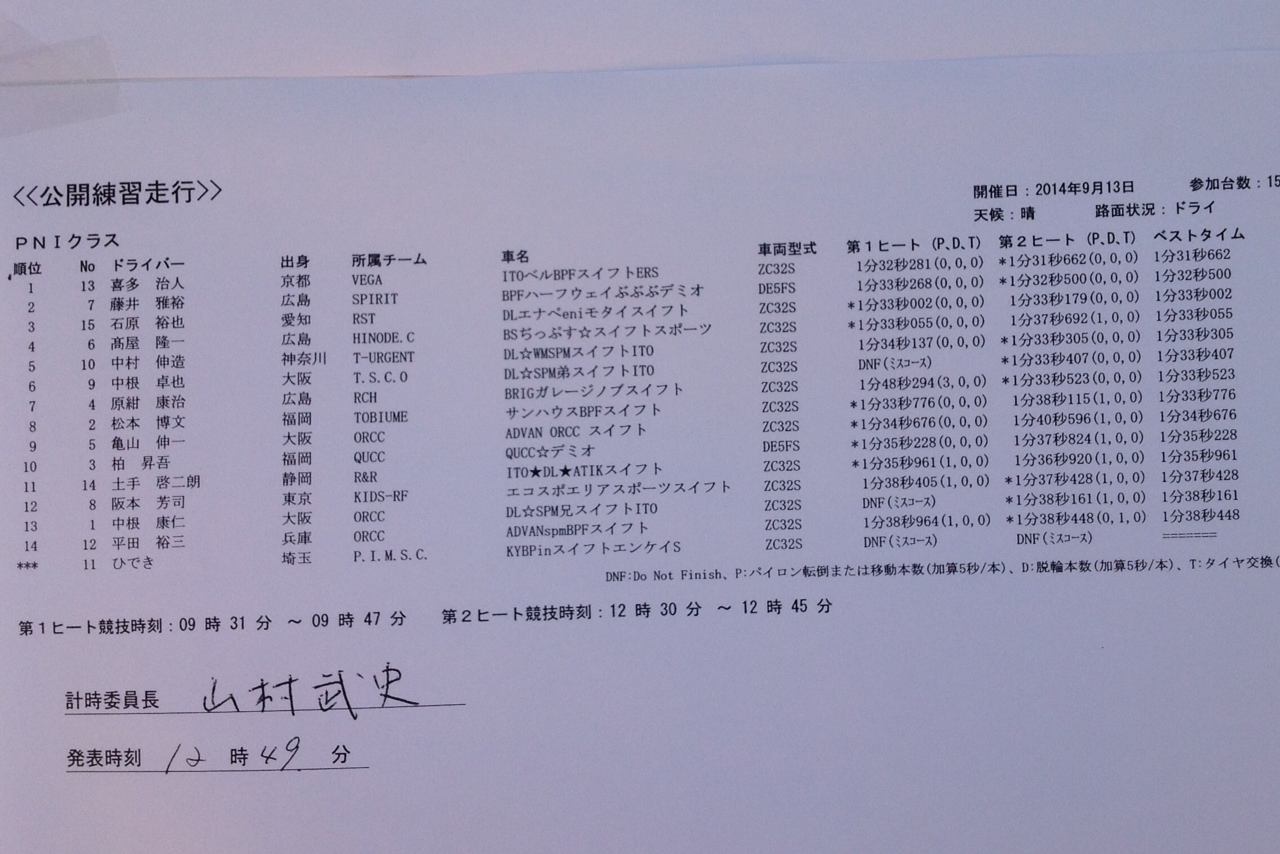 <<公開練習走行>>
開催日：2014年9月13日 参加台数：15
天候：晴 路面状況：ドライ
ＰＮ１クラス
順位 No ドライバー 出身 所属チーム 車名 車両型式 第１ヒート (P,D,T) 第２ヒート (P,D,T) ベストタイム
1 13 喜多 治人 京都 VEGA ITOベルBPFスイフトERS ZC32S 1分32秒281(0,0,0) *1分31秒662(0,0,0) 1分31秒662
2 7 藤井 雅裕 広島 SPIRIT BPFハーフウェイぷぷぷデミオ DE5FS 1分33秒268(0,0,0) *1分32秒500(0,0,0) 1分32秒500
3 15 石原 裕也 愛知 RST DLエナペeniモタイスイフト ZC32S *1分33秒002(0,0,0) 1分33秒179(0,0,0) 1分33秒002
4 6 髙屋 隆一 広島 HINODE.C BSぢっぷす☆スイフトスポーツ ZC32S *1分33秒055(0,0,0) 1分37秒692(1,0,0) 1分33秒055
5 10 中村 伸造 神奈川 T-URGENT DL☆WMSPMスイフトITO ZC32S 1分34秒137(0,0,0) *1分33秒305(0,0,0) 1分33秒305
6 9 中根 卓也 大阪 T.S.C.O DL☆SPM弟スイフトITO ZC32S DNF(ﾐｽｺｰｽ) *1分33秒407(0,0,0) 1分33秒407
7 4 原紺 康治 広島 RCH BRIGガレージノブスイフト ZC32S 1分48秒294(3,0,0) *1分33秒523(0,0,0) 1分33秒523
8 2 松本 博文 福岡 TOBIUME サンハウスBPFスイフト ZC32S *1分33秒776(0,0,0) 1分38秒115(1,0,0) 1分33秒776
9 5 亀山 伸一 大阪 ORCC ADVAN ORCC スイフト ZC32S *1分34秒676(0,0,0) 1分40秒596(1,0,0) 1分34秒676
10 3 柏 昇吾 福岡 QUCC QUCC☆デミオ DE5FS *1分35秒228(0,0,0) 1分37秒824(1,0,0) 1分35秒228
11 14 土手 啓二朗 静岡 R&R ITO★DL★ATIKスイフト ZC32S *1分35秒961(1,0,0) 1分36秒920(1,0,0) 1分35秒961
12 8 阪本 芳司 東京 KIDS-RF エコスポエリアスポーツスイフト ZC32S 1分38秒405(1,0,0) *1分37秒428(1,0,0) 1分37秒428
13 1 中根 康仁 大阪 ORCC DL☆SPM兄スイフトITO ZC32S DNF(ﾐｽｺｰｽ) *1分38秒161(1,0,0) 1分38秒161
14 12 平田 裕三 兵庫 ORCC ADVANspmBPFスイフト ZC32S 1分38秒964(1,0,0) *1分38秒448(0,1,0) 1分38秒448
*** 11 ひでき 埼玉 P.I.M.S.C. KYBPinスイフトエンケイS ZC32S DNF(ﾐｽｺｰｽ) DNF(ﾐｽｺｰｽ) =======
DNF:Do Not Finish、P:パイロン転倒または移動本数(加算5秒/本)、D:脱輪本数(加算5秒/本)、T:タイヤ交換(
第１ヒート競技時刻：09 時 31 分 ～ 09 時 47 分 第２ヒート競技時刻：12 時 30 分 ～ 12 時 45 分
計時委員長 山村武史
発表時刻 12 時 49 分